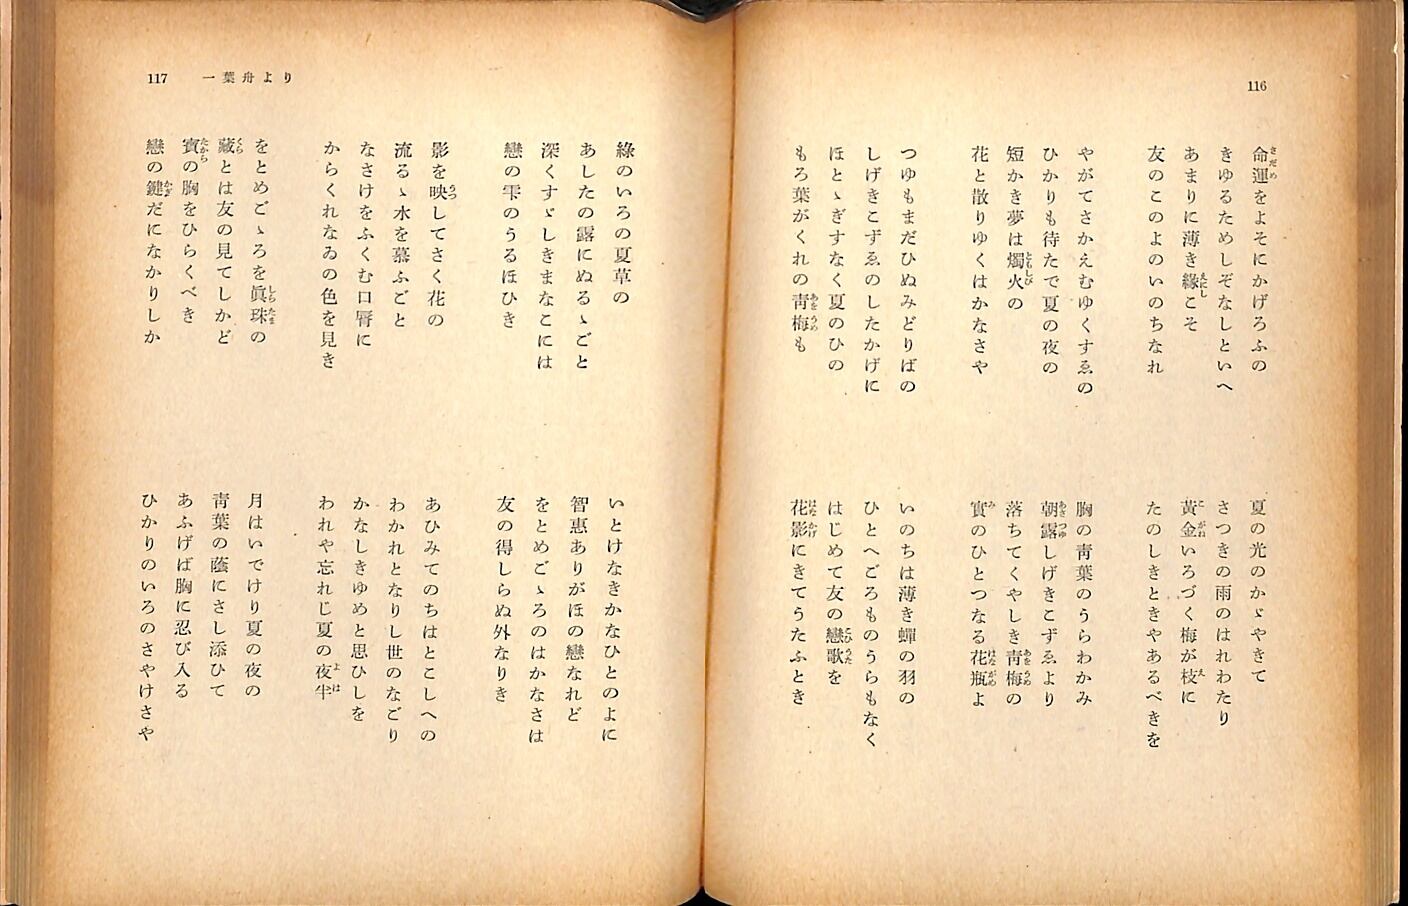 116
命運をよそにかげろふの
きゆるためしぞなしといへ
あまりに薄き緣こそ
友のこのよのいのちなれ
やがてさかえむゆくすゑの
ひかりも待たで夏の夜の
短かき夢は燭火の
花と散りゆくはかなさや
つゆもまだひぬみどりばの
しげきこずゑのしたかげに
ほとゝぎすなく夏のひの
もろ葉がくれの靑梅も
夏の光のかゞやきて
さつきの雨のはれわたり
黃金いろづく梅が枝に
たのしきときやあるべきを
胸の靑葉のうらわかみ
朝露しげきこずゑより
落ちてくやしき靑梅の
實のひとつなる花瓶よ
いのちは薄き蟬の羽の
ひとへごろものうらもなく
はじめて友の戀歌を
花影にきてうたふとき
117 一葉舟より
綠のいろの夏草の
あしたの露にぬるゝごと
深くすゞしきまなこには
戀の雫のうるほひき
影を映してさく花の
流るゝ水を慕ふごと
なさけをふくむ口脣に
からくれなゐの色を見き
をとめごゝろを眞珠の
藏とは友の見てしかど
寳の胸をひらくべき
戀の鍵だになかりしか
いとけなきかなひとのよに
智惠ありがほの戀なれど
をとめごゝろのはかなさは
友の得しらぬ外なりき
あひみてのちはとこしへの
わかれとなりし世のなごり
かなしきゆめと思ひしを
われや忘れじ夏の夜半
月はいでけり夏の夜の
靑葉の蔭にさし添ひて
あふげば胸に忍び入る
ひかりのいろのさやけさや